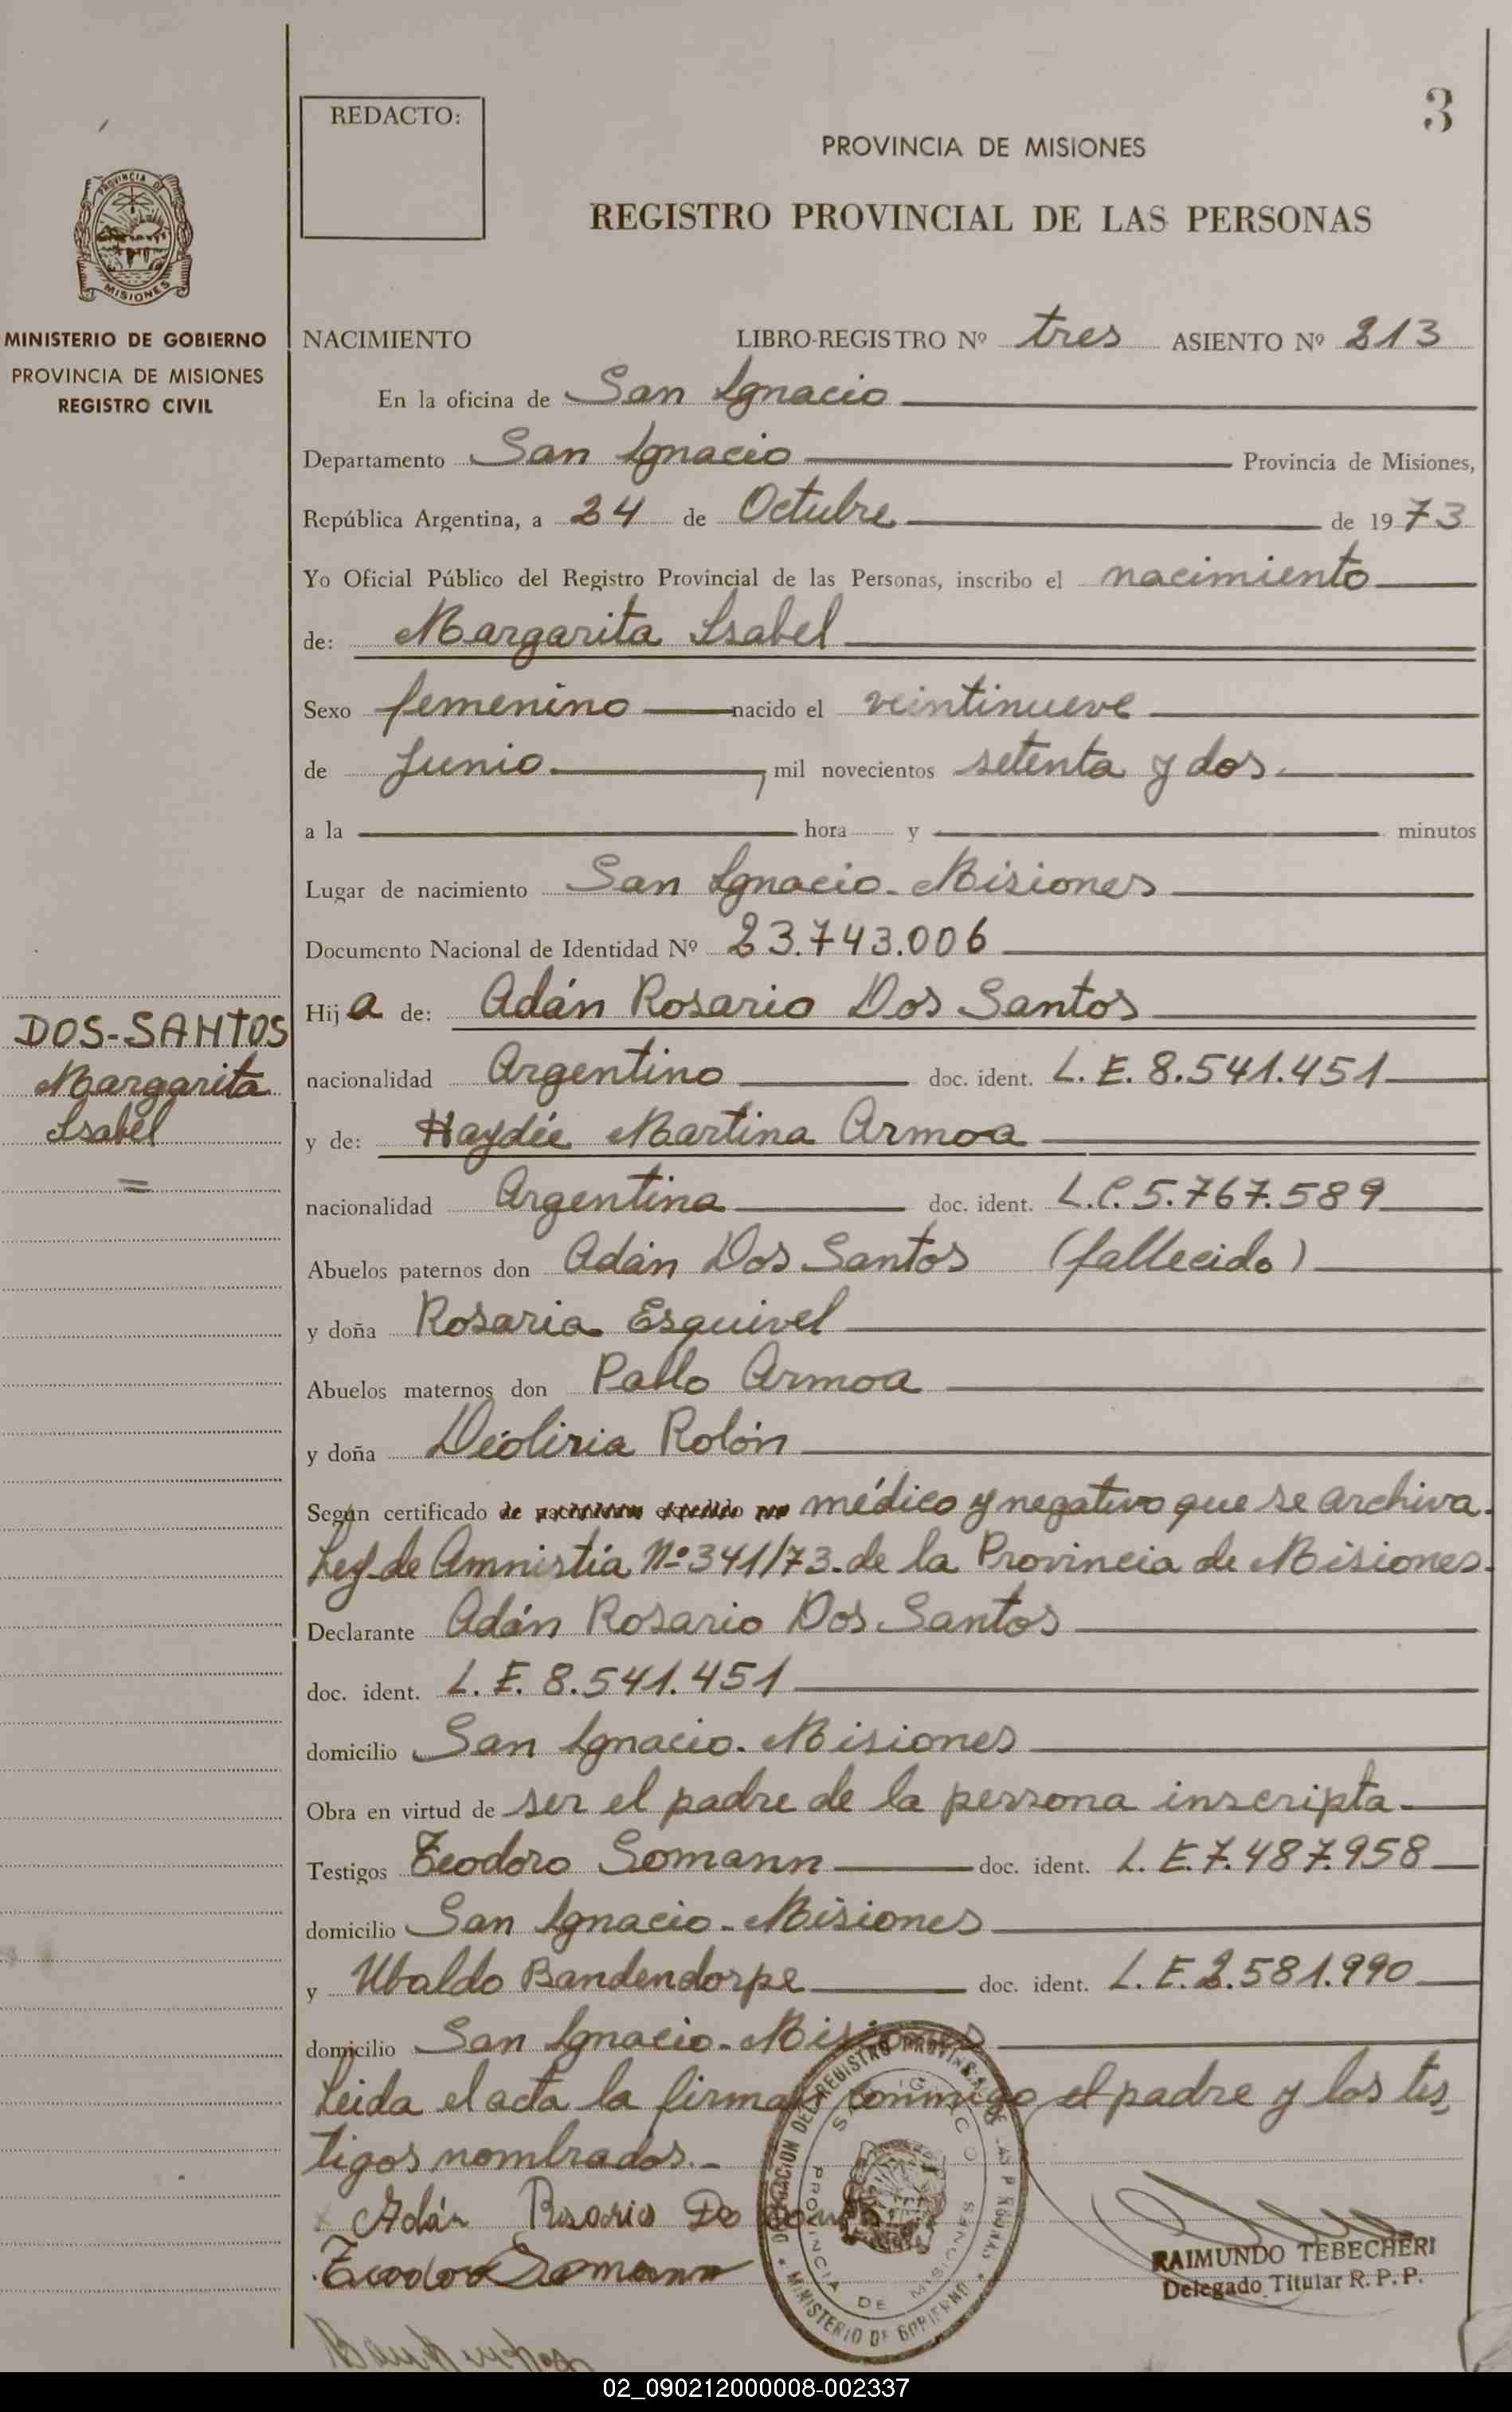 3
REDACTO:
PROVINCIA DE MISIONES
REGISTRO PROVINCIAL DE LAS PERSONAS
PROVINCIA DE
MISIONES
MINISTERIO DE GOBIERNO
PROVINCIA DE MISIONES
REGISTRO CIVIL
NACIMIENTO LIBRO-REGISTRO Nº tres ASIENTO Nº 213
En la oficina de San Ignacio
Departamento San Ignacio Provincia de Misiones,
República Argentina, a 24 de Octubre de 1973
Yo Oficial Público del Registro Provincial de las Personas, inscribo el nacimiento
de: Margarita Isabel
Sexo femenino nacido el veintinueve
de Junio, mil novecientos setenta y dos.
a la hora y minutos
Lugar de nacimiento San Ignacio. Misiones
Documento Nacional de Identidad Nº 23.743.006
DOS-SANTOS
Margarita
Isabel
=
Hija de: Adán Rosario Dos Santos
nacionalidad Argentino doc. ident. L. E. 8.541.451
y de: Haydée Martina Armoa
nacionalidad Argentina doc. ident. L.C. 5.767.589
Abuelos paternos don Adán Dos Santos (fallecido)
y doña Rosaria Esquivel
Abuelos maternos don Pablo Armoa
y doña Deoliria Rolón
Según certificado de nacimiento expedido por médico y negativo que se archiva.
Ley de Amnistía Nº 341/73. de la Provincia de Misiones.
Declarante Adán Rosario Dos Santos
doc. ident. L. E. 8.541.451
domicilio San Ignacio. Misiones
Obra en virtud de ser el padre de la persona inscripta.
Testigos Teodoro Somann doc. ident. L. E. 7.487.958
domicilio San Ignacio. Misiones
y Ubaldo Bandendorpe doc. ident. L. E. 2.581.990
domicilio San Ignacio. Misiones
Leida el acta la firman conmigo el padre y los tes
tigos nombrados.-
Adán Rosario Do
Teodoro Somann
DELEGACION DEL REGISTRO PROVINCIAL DE LAS PERSONAS
SAN IGNACIO
PROVINCIA DE MISIONES
MINISTERIO DE GOBIERNO
RAIMUNDO TEBECHERI
Delegado Titular R. P. P.
02_090212000008-002337